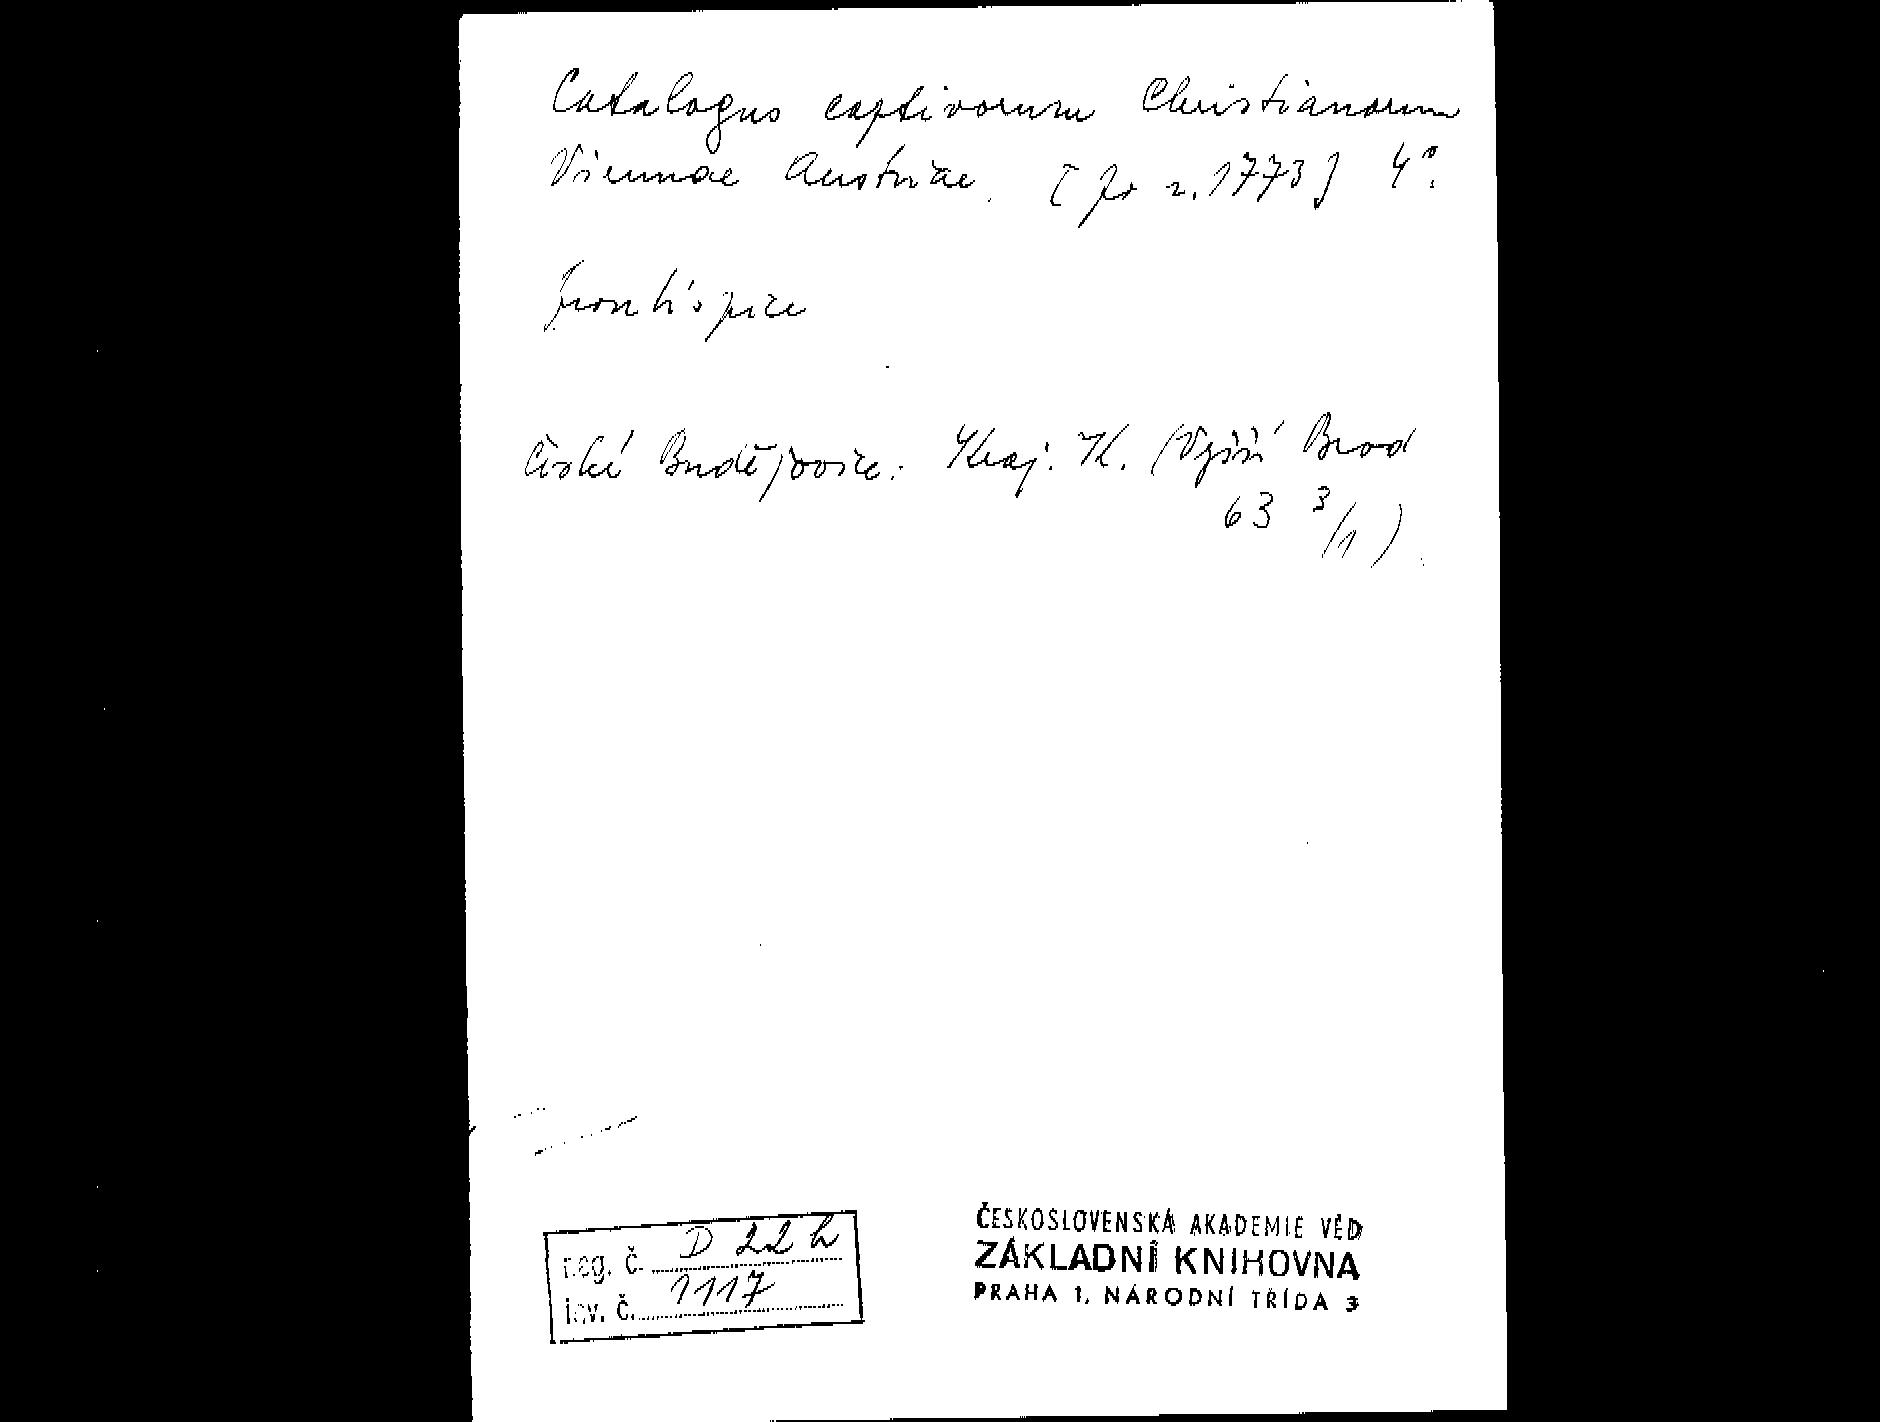 Catalogus captivorum Christianorum
Viennae Austriae. [po r. 1773] 4°.
Frontispice
České Budějovice: Kraj. K. (Vyšší Brod
63 3/1)
neg. č. D 22 h
inv. č. 1117
ČESKOSLOVENSKÁ AKADEMIE VĚD
ZÁKLADNÍ KNIHOVNA
PRAHA 1, NÁRODNÍ TŘÍDA 3